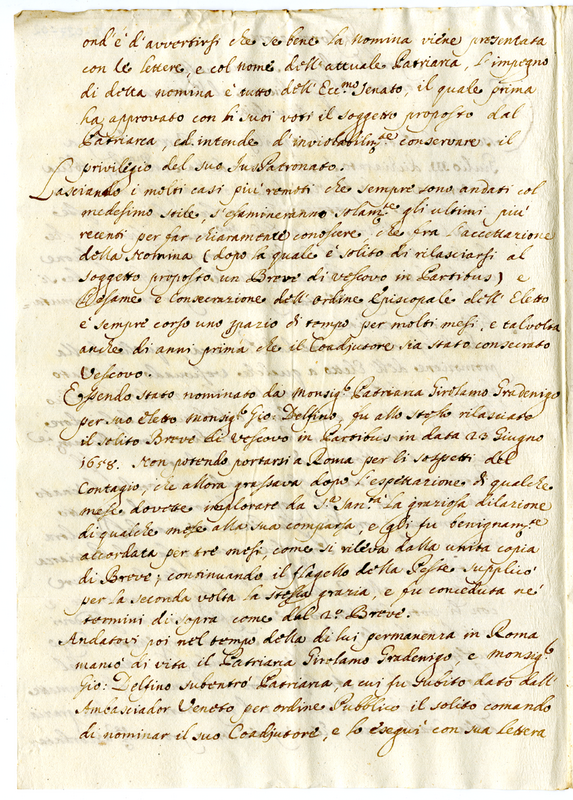 ond'é d'avvertirsi che se bene la Nomina viene presentata
con le lettere, e col nome dell'attuale Patriarca, l'impegno
di detta nomina è tutto dell'Ecc.mo Senato, il quale prima
ha approvato con li suoi voti il soggetto proposto dal
Patriarca ed intende d'inviolabilm.te conservare il
privilegio del suo JusPatronato.
Lasciando i molti casi più remoti che sempre sono andati col
medesimo stile, s'esamineranno solam.te gli ultimi più
recenti per far chiaramente conoscere che fra l'accettazione
della Nomina (dopo la quale è solito di rilasciarsi al
soggetto proposto un Breve di Vescovo in Partibus) e
l'Esame e consecrazione dell'Ordine Episcopale dell'Eletto
è sempre corso uno spazio di tempo per molti mesi, e talvolta
anche di anni prima che il Coadjutore sia stato consecrato
Vescovo.
Essendo stato nominato da Monsig.r Patriarca Girolamo Gradenigo
per suo eletto Monsig.r Gio: Delfino, fu allo stesso rilasciato
il solito Breve di Vescovo in Partibus in data 23 Giugno
1658. Non potendo portarsi a Roma per li sospetti del
Contagio, che allora grassava dopo l'espettazione di qualche
mese dovette implorare da S.a San.ta la graziosa dilazione
di qualche mese alla sua comparsa, e gli fu benignam.te
accordata per tre mesi, come si rileva dalla unita copia
di Breve; continuando il flagello della Peste supplicò
per la seconda volta la stessa grazia, e fu conceduta ne'
termini di sopra come dal 2.o Breve.
Andatovi poi nel tempo della di lui permanenza in Roma
mancò di vita il Patriarca Girolamo Gradenigo, e Monsig.r
Gio: Delfino subentrò Patriarca, a cui fu subito dato dall'
Ambasciador Veneto per ordine Pubblico il solito comando
di nominar il suo Coadjutore, e lo eseguì con sua lettera